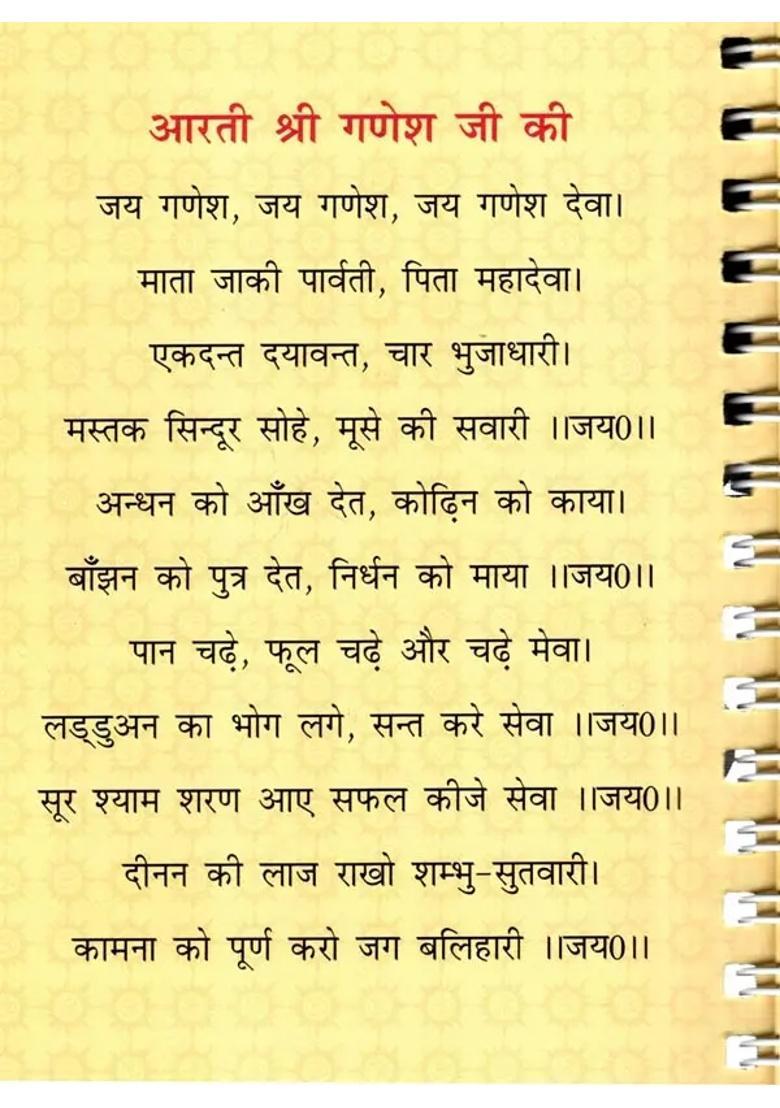 आरती श्री गणेश जी की
जय गणेश, जय गणेश, जय गणेश देवा।
माता जाकी पार्वती, पिता महादेवा।
एकदन्त दयावन्त, चार भुजाधारी।
मस्तक सिन्दूर सोहे, मूसे की सवारी ।।जय0।।
अन्धन को आँख देत, कोढ़िन को काया।
बाँझन को पुत्र देत, निर्धन को माया ।।जय0।।
पान चढ़े, फूल चढ़े और चढ़े मेवा।
लड्डुअन का भोग लगे, सन्त करे सेवा ।।जय0।।
सूर श्याम शरण आए सफल कीजे सेवा ।।जय0।।
दीनन की लाज राखो शम्भु-सुतवारी।
कामना को पूर्ण करो जग बलिहारी ।।जय0।।